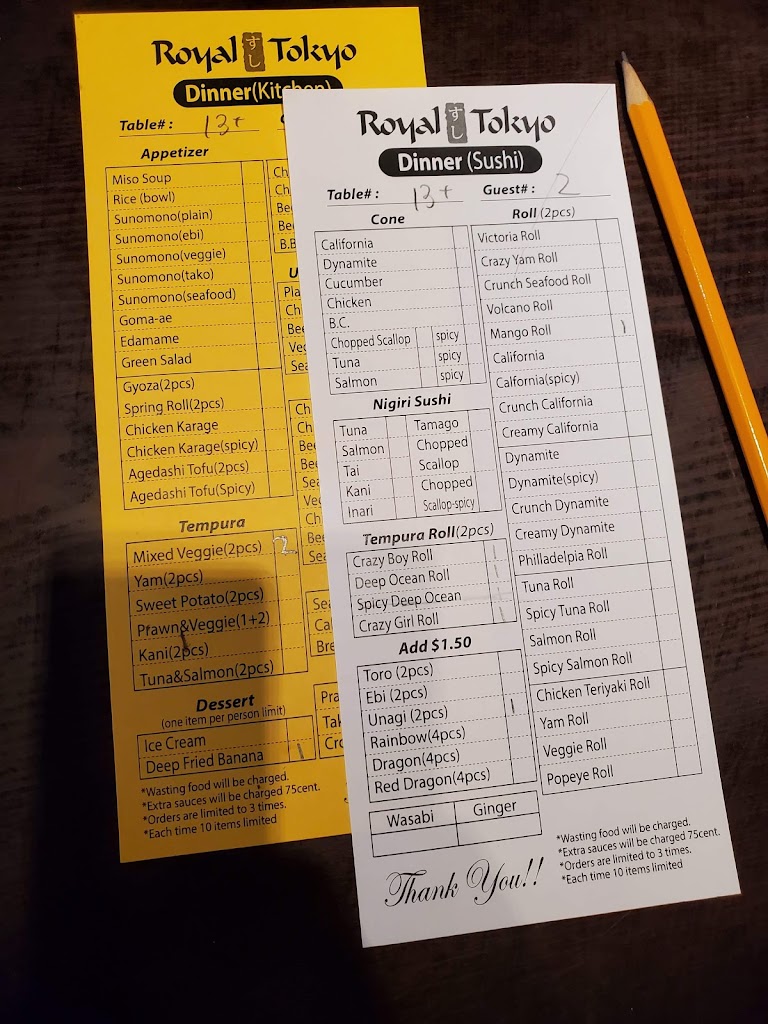 Royal すし Tokyo
Dinner(Kitchen)
Table# : 13+
Appetizer
Miso Soup
Rice (bowl)
Sunomono(plain)
Sunomono(ebi)
Sunomono(veggie)
Sunomono(tako)
Sunomono(seafood)
Goma-ae
Edamame
Green Salad
Gyoza(2pcs)
Spring Roll(2pcs)
Chicken Karage
Chicken Karage(spicy)
Agedashi Tofu(2pcs)
Agedashi Tofu(Spicy)
Tempura
Mixed Veggie(2pcs) 2
Yam(2pcs)
Sweet Potato(2pcs)
Prawn&Veggie(1+2)
Kani(2pcs)
Tuna&Salmon(2pcs)
Dessert
(one item per person limit)
Ice Cream
Deep Fried Banana 1
*Wasting food will be charged.
*Extra sauces will be charged 75cent.
*Orders are limited to 3 times.
*Each time 10 items limited
Royal すし Tokyo
Dinner (Sushi)
Table# : 13+ Guest# : 2
Cone
California
Dynamite
Cucumber
Chicken
B.C.
Chopped Scallop spicy
Tuna spicy
Salmon spicy
Nigiri Sushi
Tuna Tamago
Salmon Chopped
Tai Scallop
Kani Chopped
Inari Scallop-spicy
Tempura Roll(2pcs)
Crazy Boy Roll 1
Deep Ocean Roll 1
Spicy Deep Ocean 1
Crazy Girl Roll 1
Add $1.50
Toro (2pcs)
Ebi (2pcs)
Unagi (2pcs) 1
Rainbow(4pcs)
Dragon(4pcs)
Red Dragon(4pcs)
Wasabi Ginger
Roll (2pcs)
Victoria Roll
Crazy Yam Roll
Crunch Seafood Roll
Volcano Roll
Mango Roll 1
California
Calfornia(spicy)
Crunch California
Creamy California
Dynamite
Dynamite(spicy)
Crunch Dynamite
Creamy Dynamite
Philladelpia Roll
Tuna Roll
Spicy Tuna Roll
Salmon Roll
Spicy Salmon Roll
Chicken Teriyaki Roll
Yam Roll
Veggie Roll
Popeye Roll
Thank You!!
*Wasting food will be charged.
*Extra sauces will be charged 75cent.
*Orders are limited to 3 times.
*Each time 10 items limited